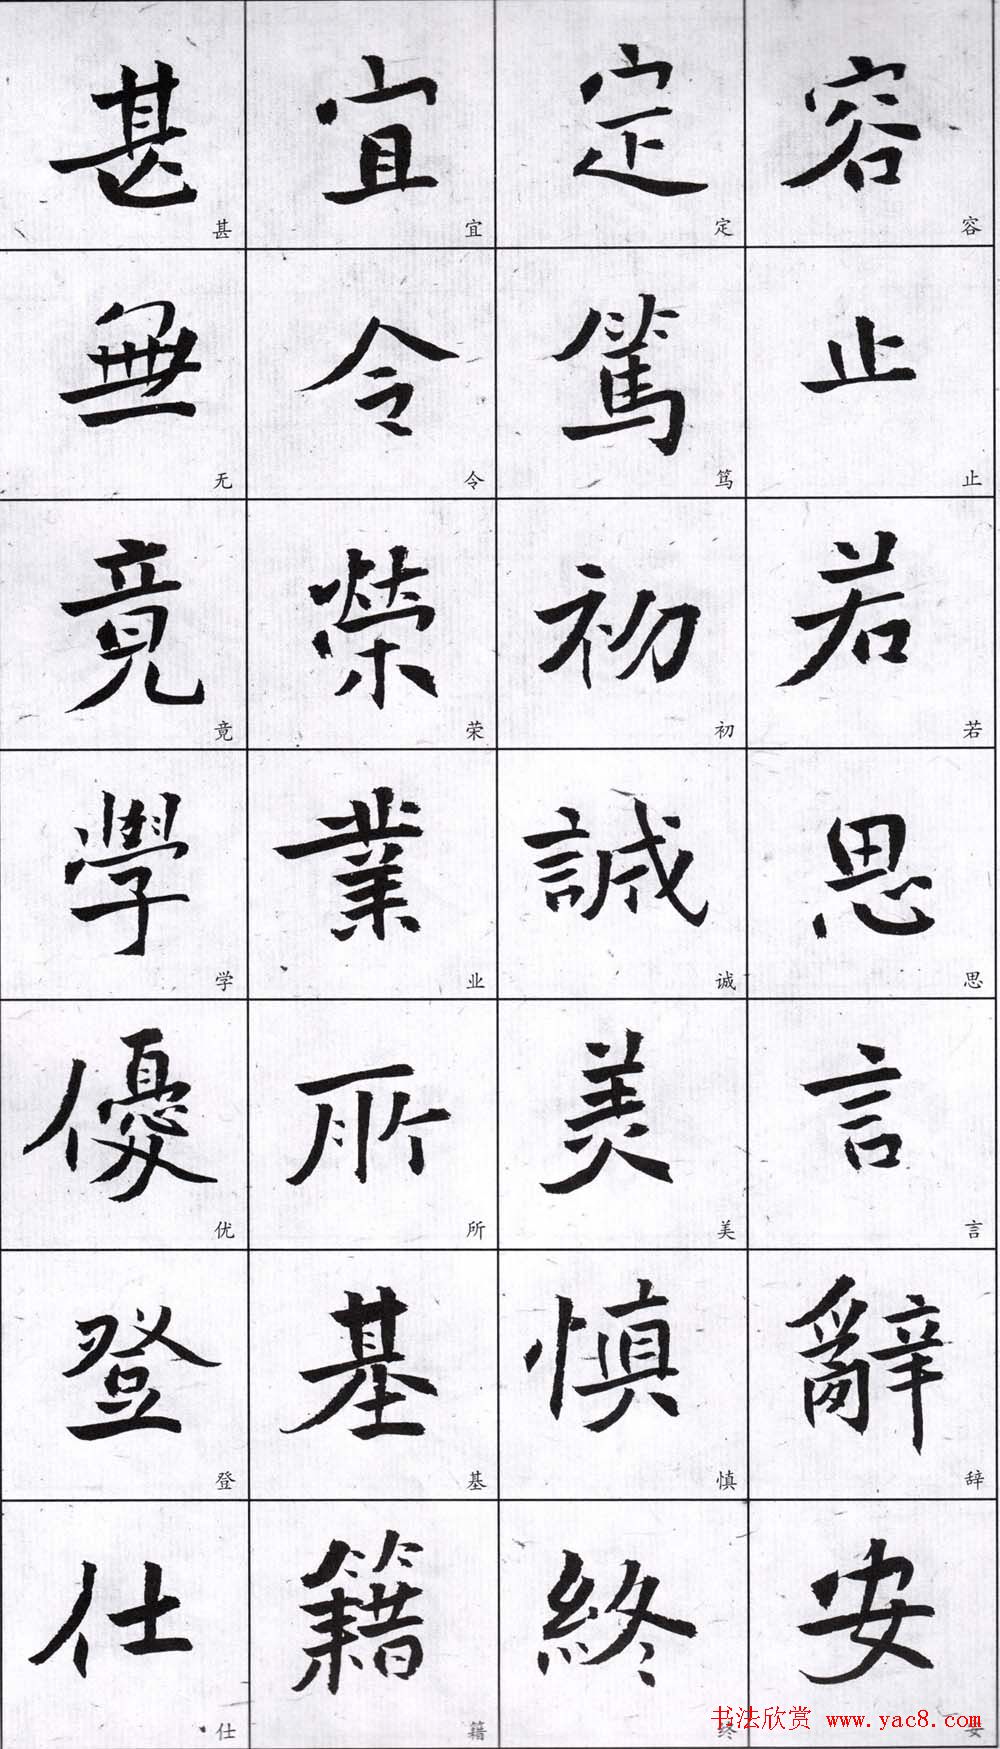 容止若思言辭安
容止若思言辞安
定篤初誠美慎終
定笃初诚美慎终
宜令榮業所基籍
宜令荣业所基籍
甚無竟學優登仕
甚无竟学优登仕
书法欣赏 www.yac8.com